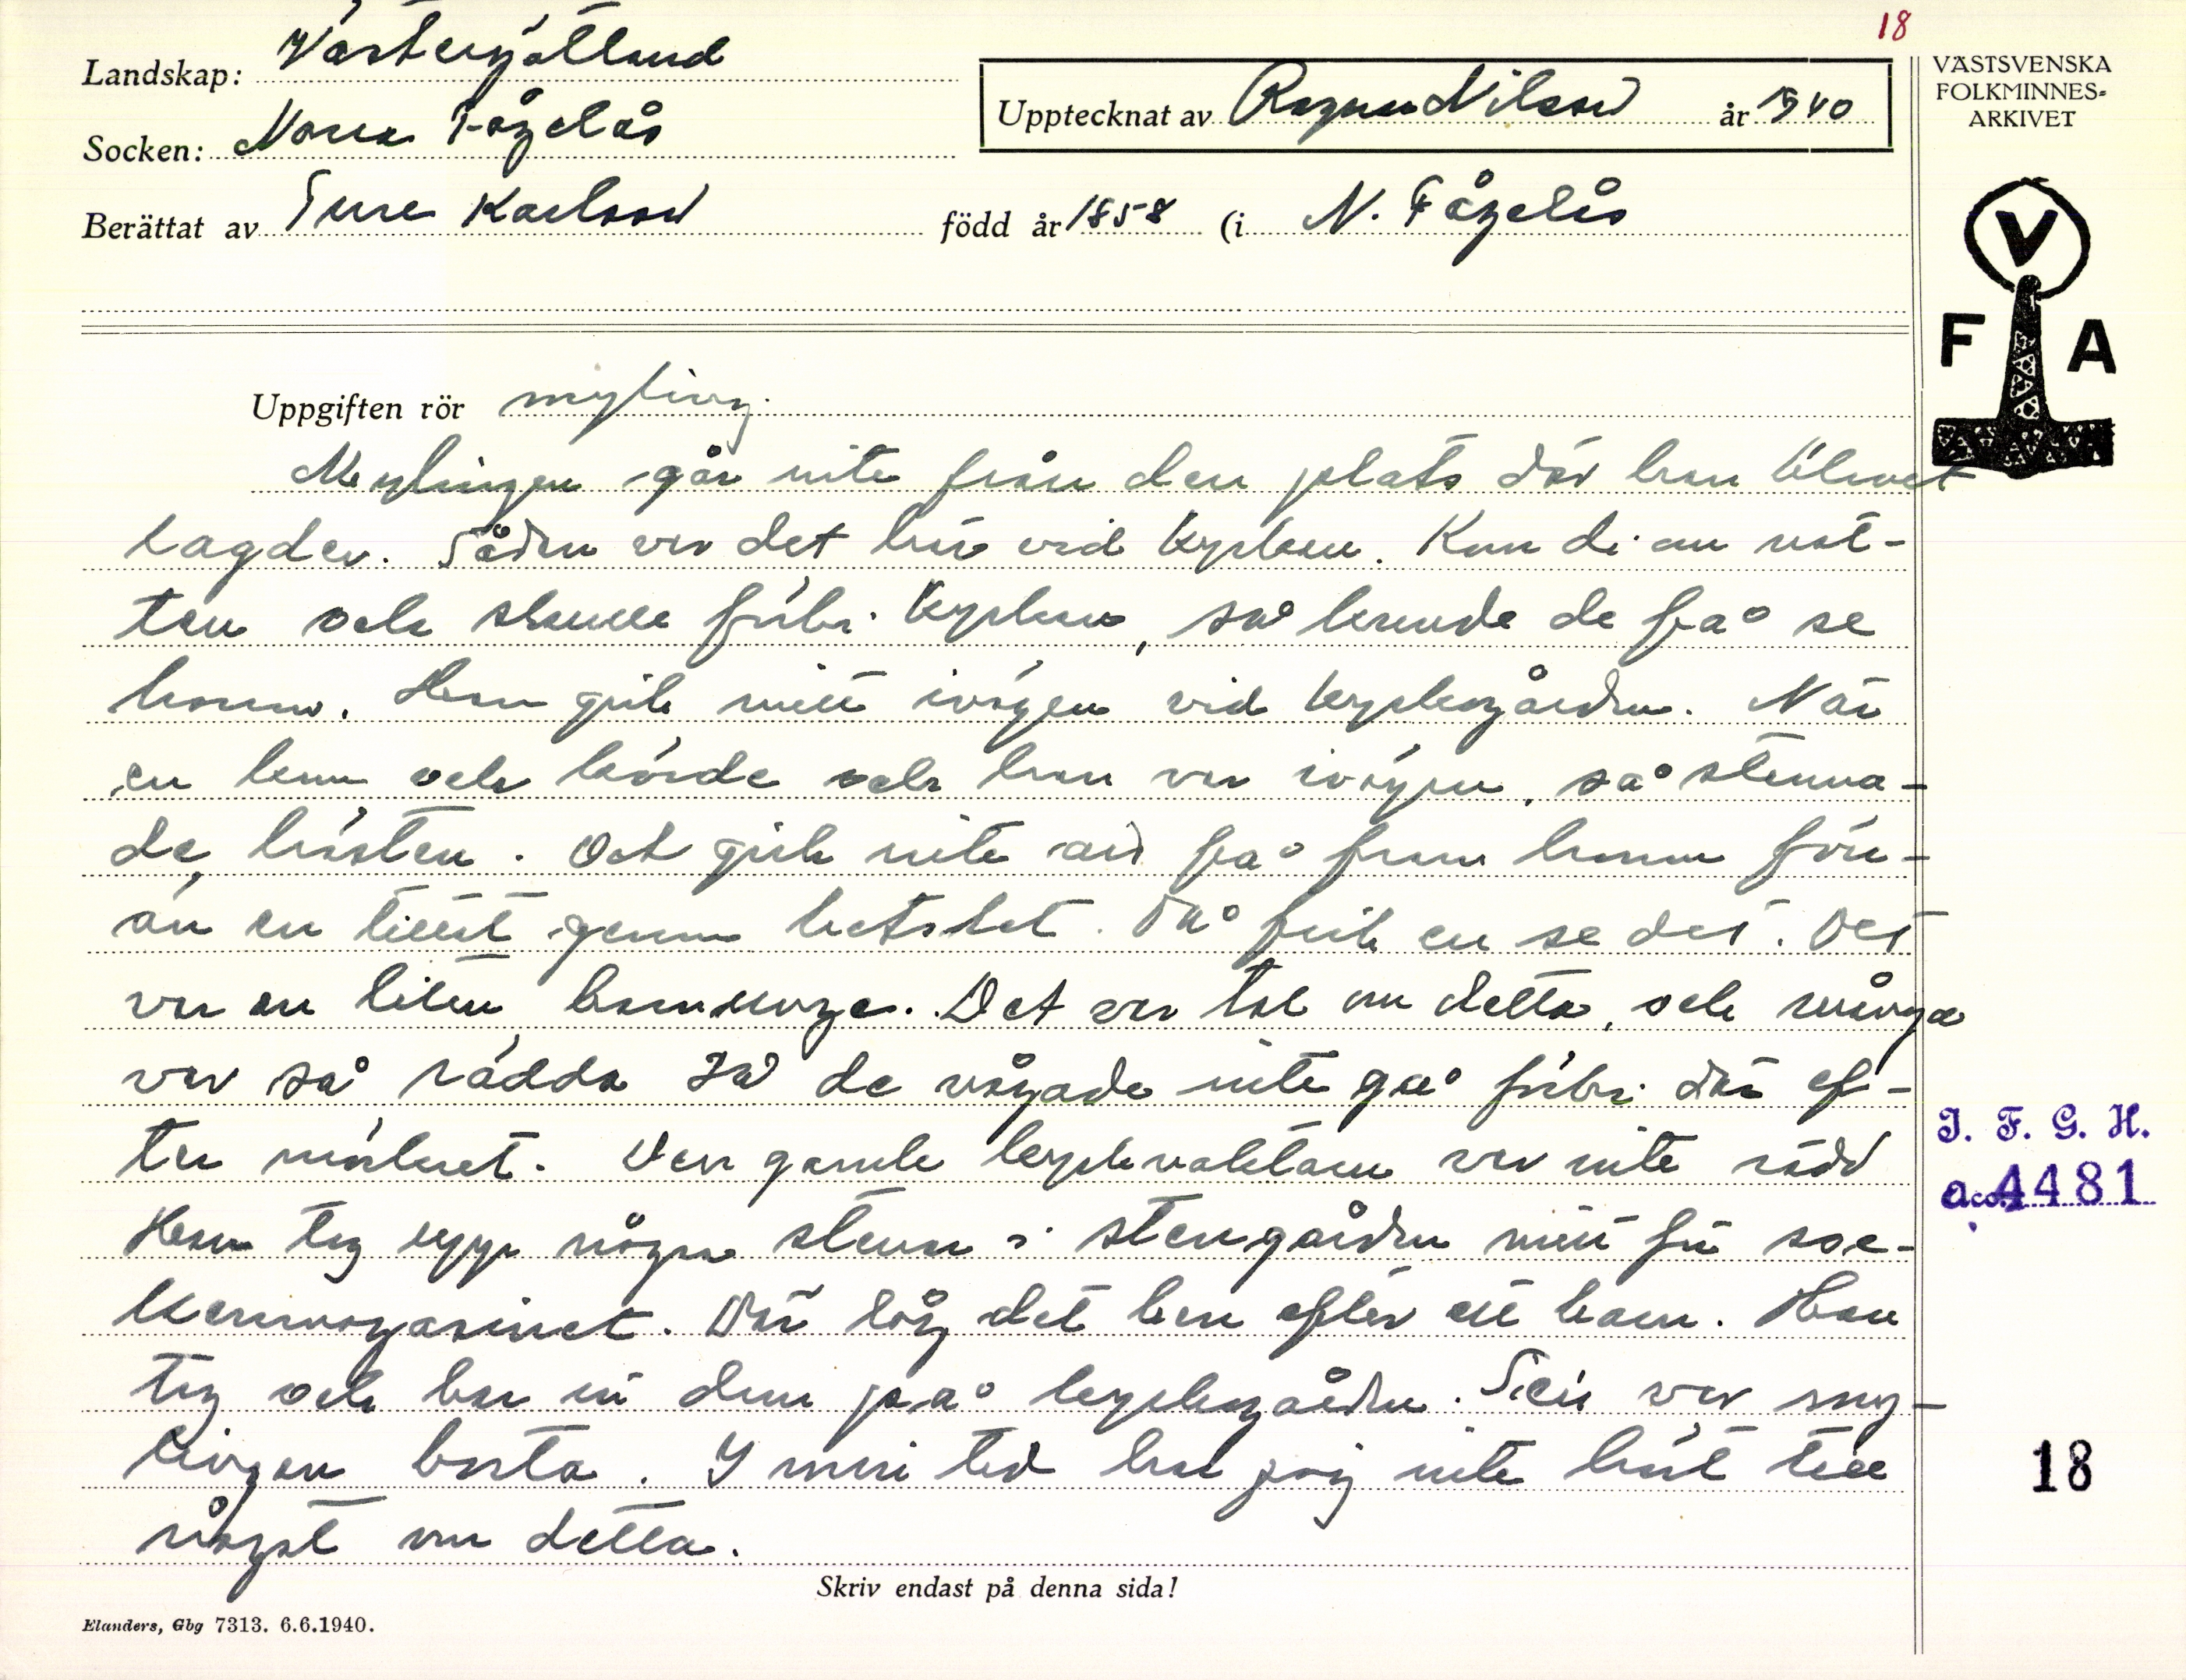 18
Landskap: Västergötland
Socken: Norra Fågelås
Upptecknat av Ragnar Nilsson år 1940
Berättat av Ture Karlsson född år 1858 (i N. Fågelås
VÄSTSVENSKA
FOLKMINNES-
ARKIVET
V
F A
Uppgiften rör myling.
Mylingen går inte från den plats där han blivet
lagder. Sådan var det här vid kyrkan. Kom di om nat-
ten och skulle förbi kyrkan, så kunde de få se
honom. Han gick mitt ivägen vid kyrkogården. När
en kom och körde och han var ivägen, så stanna-
de hästen. Och gick inte att få fram honom förr-
än en titat genom betslet. Då fick en se det. Det
var en liten barnunge. Det var tal om detta, och många
var så rädda så de vågade inte gå förbi där ef-
ter mörkret. Den gamle kyrkvaktaren var inte rädd
Han tog upp några stenar i stengården mitt för soc-
kenmagasinet. Där låg det ben efter ett barn. Han
tog och bar in dem på kyrkogården. Sen var my-
lingen borta. I min tid har jag inte hört till
något om detta.
I. F. G. H.
acc. 4481
18
Skriv endast på denna sida!
Elanders, Gbg 7313. 6.6.1940.